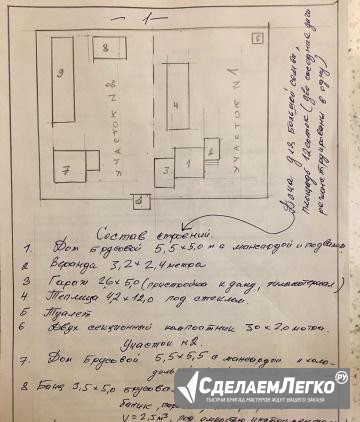 - 1 -
9
8
5
4
УЧАСТОК №2
УЧАСТОК №1
7
3
1
2
6
Дача для большой семьи,
площадь 12 соток (две соседние дачи
регистрированы в одну)
Состав строений.
1. Дом брусовой 5,5×5,0 м с мансардой и подвалом
2 Веранда 3,2×2,4 метра
3 Гараж 2,6×5,0 (пристройка к дому, пиломатериал)
4 Теплица 4,2×12,0 под стеклом.
5 Туалет
6 Двух секционный компостник 3,0×2,0 метра.
Участок №2.
7. Дом Брусовой 5,5×5,5 с мансардой и
8 Баня 3,5×5,0
V = 2,5 м³, под
СДЕЛАЕМЛЕГКО.РУ
ТЫСЯЧИ БРИГАД МАСТЕРОВ ЖДУТ ВАШЕГО ЗАКАЗА